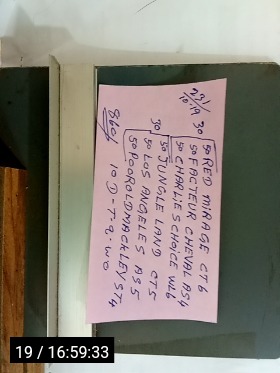 23/
10.19
30
50 RED MIRAGE CT 6
50 FACTEUR CHEVAL AS4
50 CHARLIES CHOICE WL6
30
50 JUNGLE LAND CT5
50 LOS ANGELES AS5
50 POOROLDMACKLEYST4
860/ 10 D-T-2.W0
19 / 16:59:33